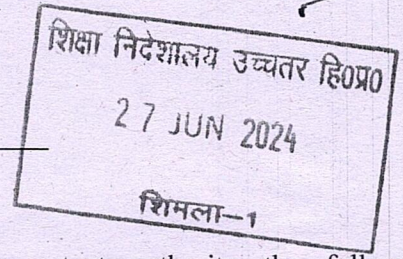 शिक्षा निदेशालय उच्चतर हि0प्र0
27 JUN 2024
शिमला-1